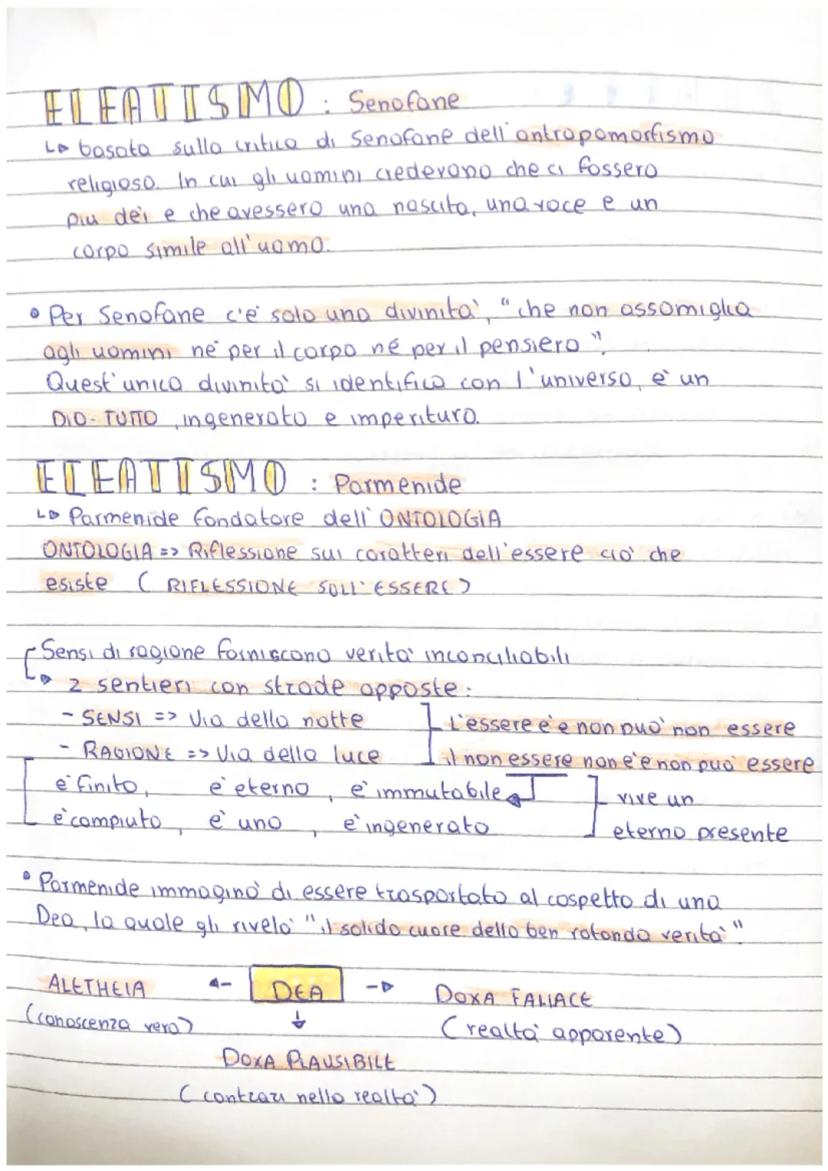 ELEATISMO : Senofane
↳ basata sulla critica di Senofane dell'antropomorfismo
religioso. In cui gli uomini credevano che ci fossero
piu dei e che avessero una nascita, una voce e un
corpo simile all'uomo.
• Per Senofane c'è solo una divinità, "che non assomiglia
agli uomini nè per il corpo né per il pensiero".
Quest'unica divinità si identifica con l'universo, è un
DIO-TUTTO, ingenerato e imperituro.
ELEATISMO : Parmenide
↳ Parmenide fondatore dell'ONTOLOGIA
ONTOLOGIA => Riflessione sui caratteri dell'essere ciò che
esiste ( RIFLESSIONE SULL'ESSERE)
Sensi di ragione forniscono verità inconciliabili
↳ 2 sentieri con strade opposte:
- SENSI => Via della notte
L'essere è e non può non essere
- RAGIONE => Via della luce
il non essere non è e non può essere
è finito, è eterno, è immutabile
vive un
è compiuto, è uno, è ingenerato
eterno presente
• Parmenide immaginò di essere trasportato al cospetto di una
Dea, la quale gli rivelò "il solido cuore della ben rotonda verità"
ALETHEIA ← DEA → DOXA FALLACE
(conoscenza vera) ↓ (realtà apparente)
DOXA PLAUSIBILE
(contrari nella realtà)